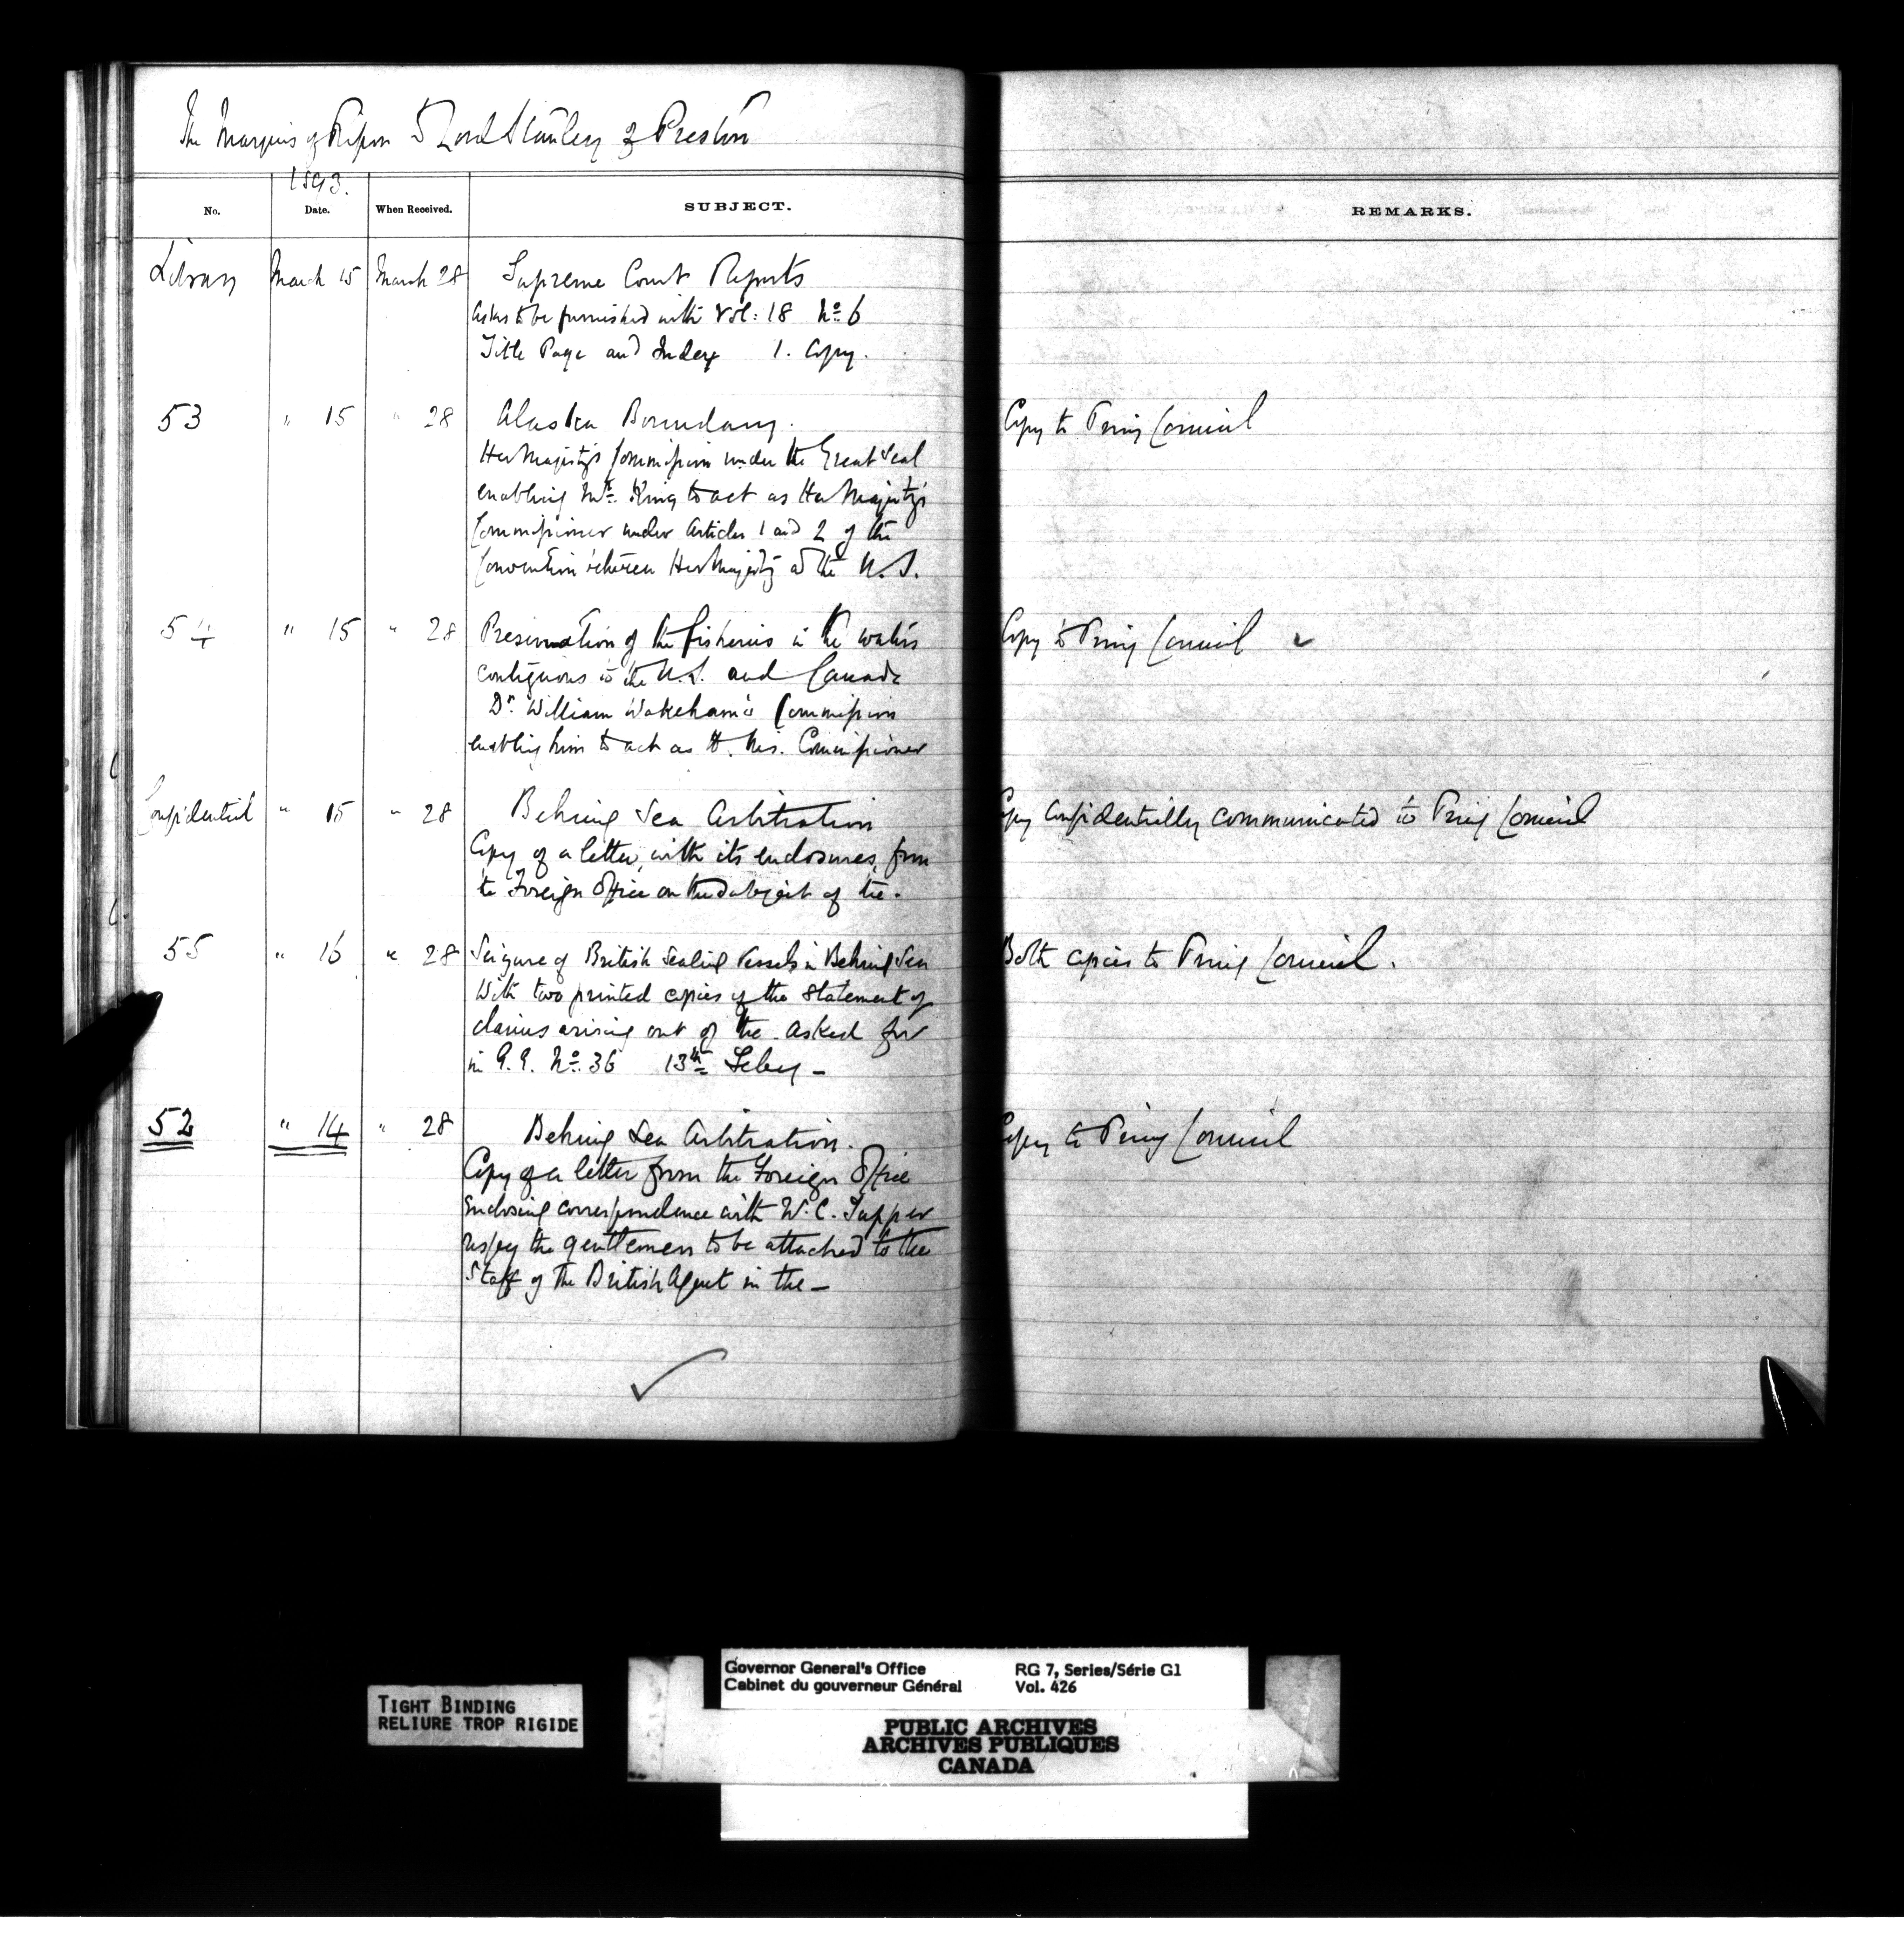 The Marquis of Ripon to Lord Stanley of Preston
1893.
No. Date. When Received. SUBJECT. REMARKS.
Library March 15 March 28 Supreme Court Reports
Asks to be furnished with Vol: 18 No. 6
Title Page and Index 1. Copy.
53 " 15 " 28 Alaska Boundary. Copy to Privy Council
Her Majesty's Commission under the Great Seal
enabling Mr. King to act as Her Majesty's
Commissioner under Articles 1 and 2 of the
Convention between Her Majesty & the U.S.
54 " 15 " 28 Preservation of the fisheries in the waters Copy to Privy Council ✓
contiguous to the U.S. and Canada
Dr. William Wakeham's Commission
enabling him to act as H. Mis. Commissioner
Confidential " 15 " 28 Behring Sea Arbitration Copy confidentially communicated to Privy Council
Copy of a letter, with its enclosures, from
the Foreign Office on the subject of the.
55 " 16 " 28 Seizure of British Sealing Vessels in Behring Sea Both copies to Privy Council.
With two printed copies of the statement of
claims arising out of the. Asked for
in G.G. No. 36 13th Feby –
52 " 14 " 28 Behring Sea Arbitration. Copy to Privy Council
Copy of a letter from the Foreign Office
Enclosing correspondence with W.C. Tupper
respg the gentlemen to be attached to the
Staff of the British Agent in the –
✓
TIGHT BINDING
RELIURE TROP RIGIDE
Governor General's Office RG 7, Series/Série G1
Cabinet du gouverneur Général Vol. 426
PUBLIC ARCHIVES
ARCHIVES PUBLIQUES
CANADA